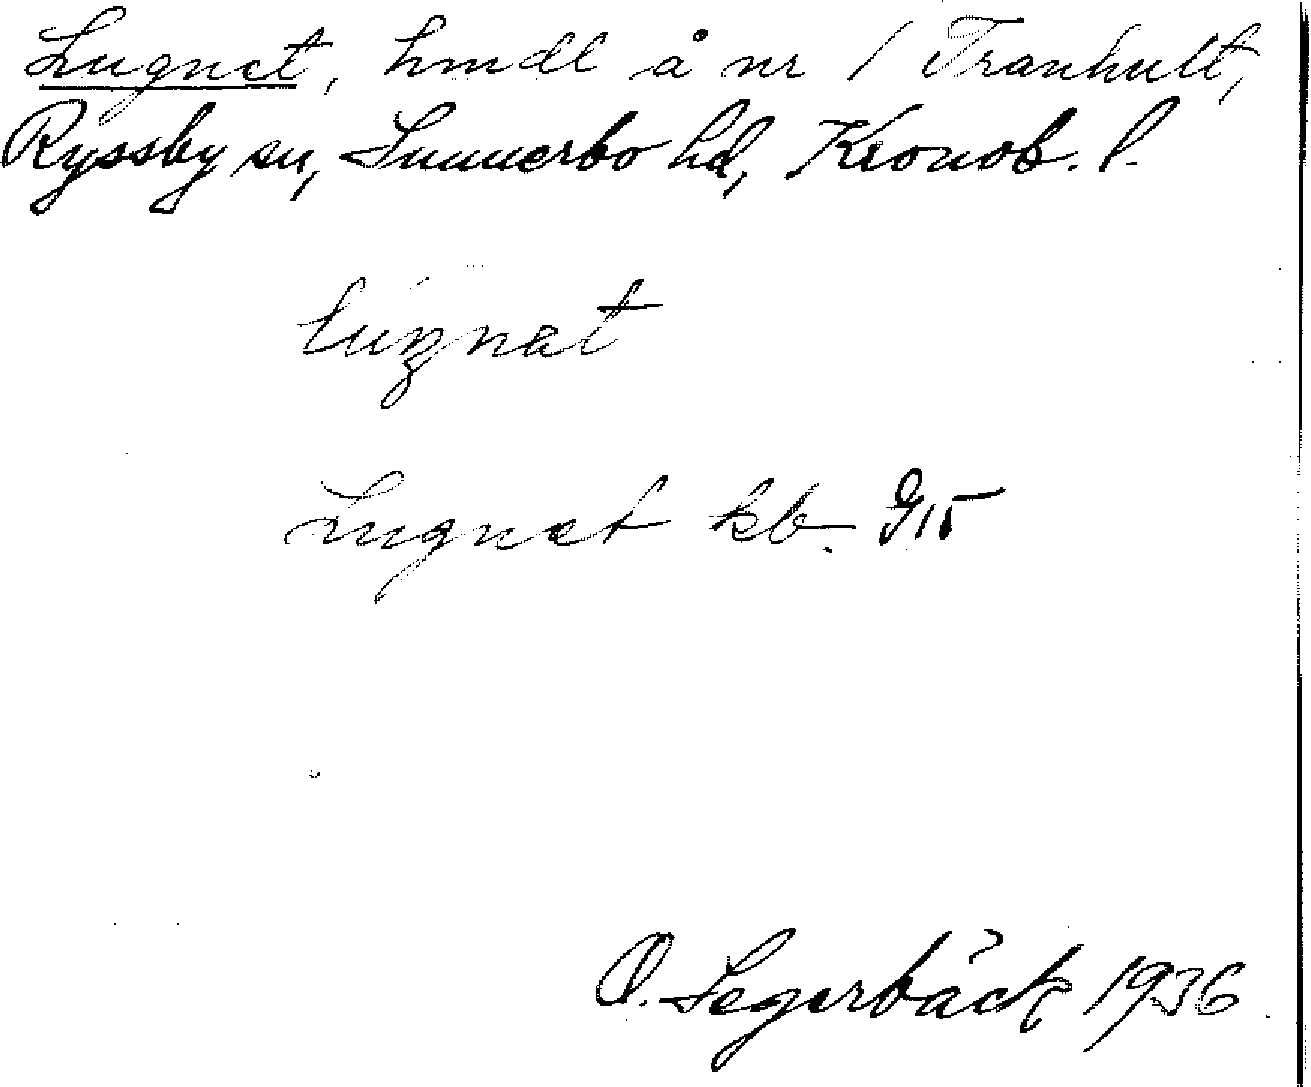 Lugnet, hmdl å nr 1 Tranhult,
Ryssby sn, Sunnerbo hd, Kronob. l.
Lugnet kb. 
O. Segerbäck 1936